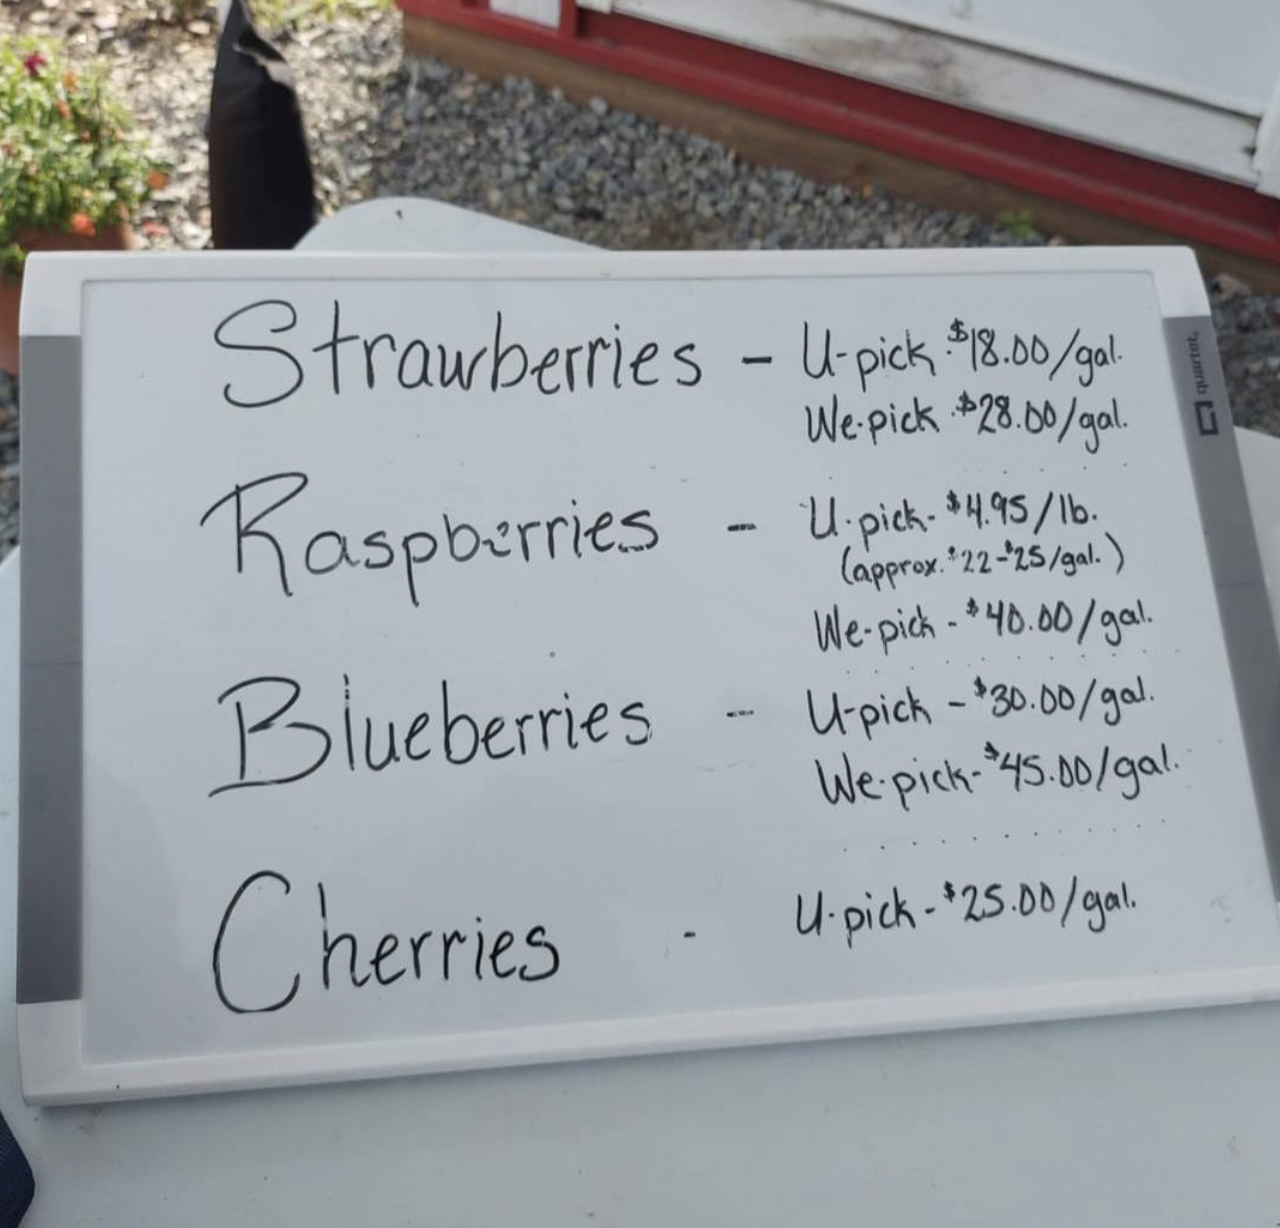 Strawberries - U-pick - $18.00/gal.
We-pick - $28.00/gal.
Raspberries - U-pick - $4.95/lb.
(approx. $22-$25/gal.)
We-pick - $40.00/gal.
Blueberries - U-pick - $30.00/gal.
We-pick - $45.00/gal.
Cherries - U-pick - $25.00/gal.
quartet